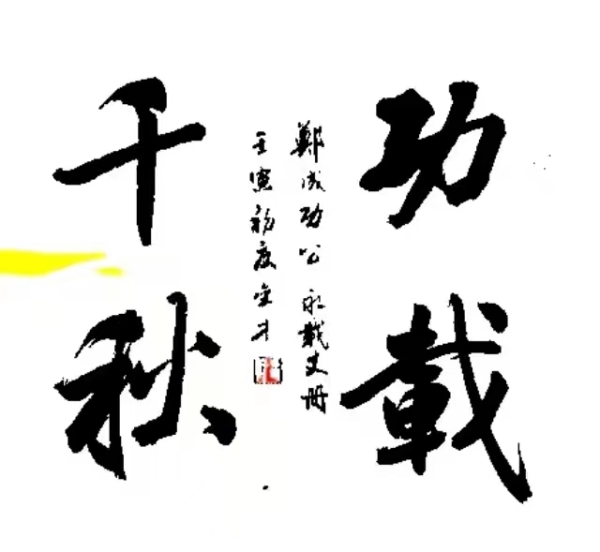 功載
千秋
鄭成功公永載史冊
壬寅初夏金才